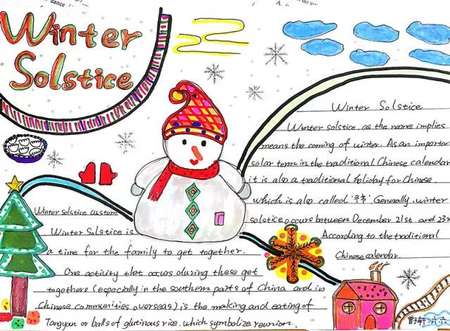 Winter
Solstice
Winter Solstice
Winter solstice as the name implies
means the coming of winter. As an important
solar term in the traditional Chinese calendar
it is also a traditional holiday for Chinese
which is also called "冬节". Generally, winter
solstice occurs between December 21st and 23rd
According to the traditional
Chinese calendar.
Winter solstice custom
Winter Solstice is
a time for the family to get together.
One activity that occurs during these get
togethers (especially in the southern parts of China and in
Chinese communities overseas) is the making and eating of
Tangyuan or balls of glutinous rice, which symbolize reunion.